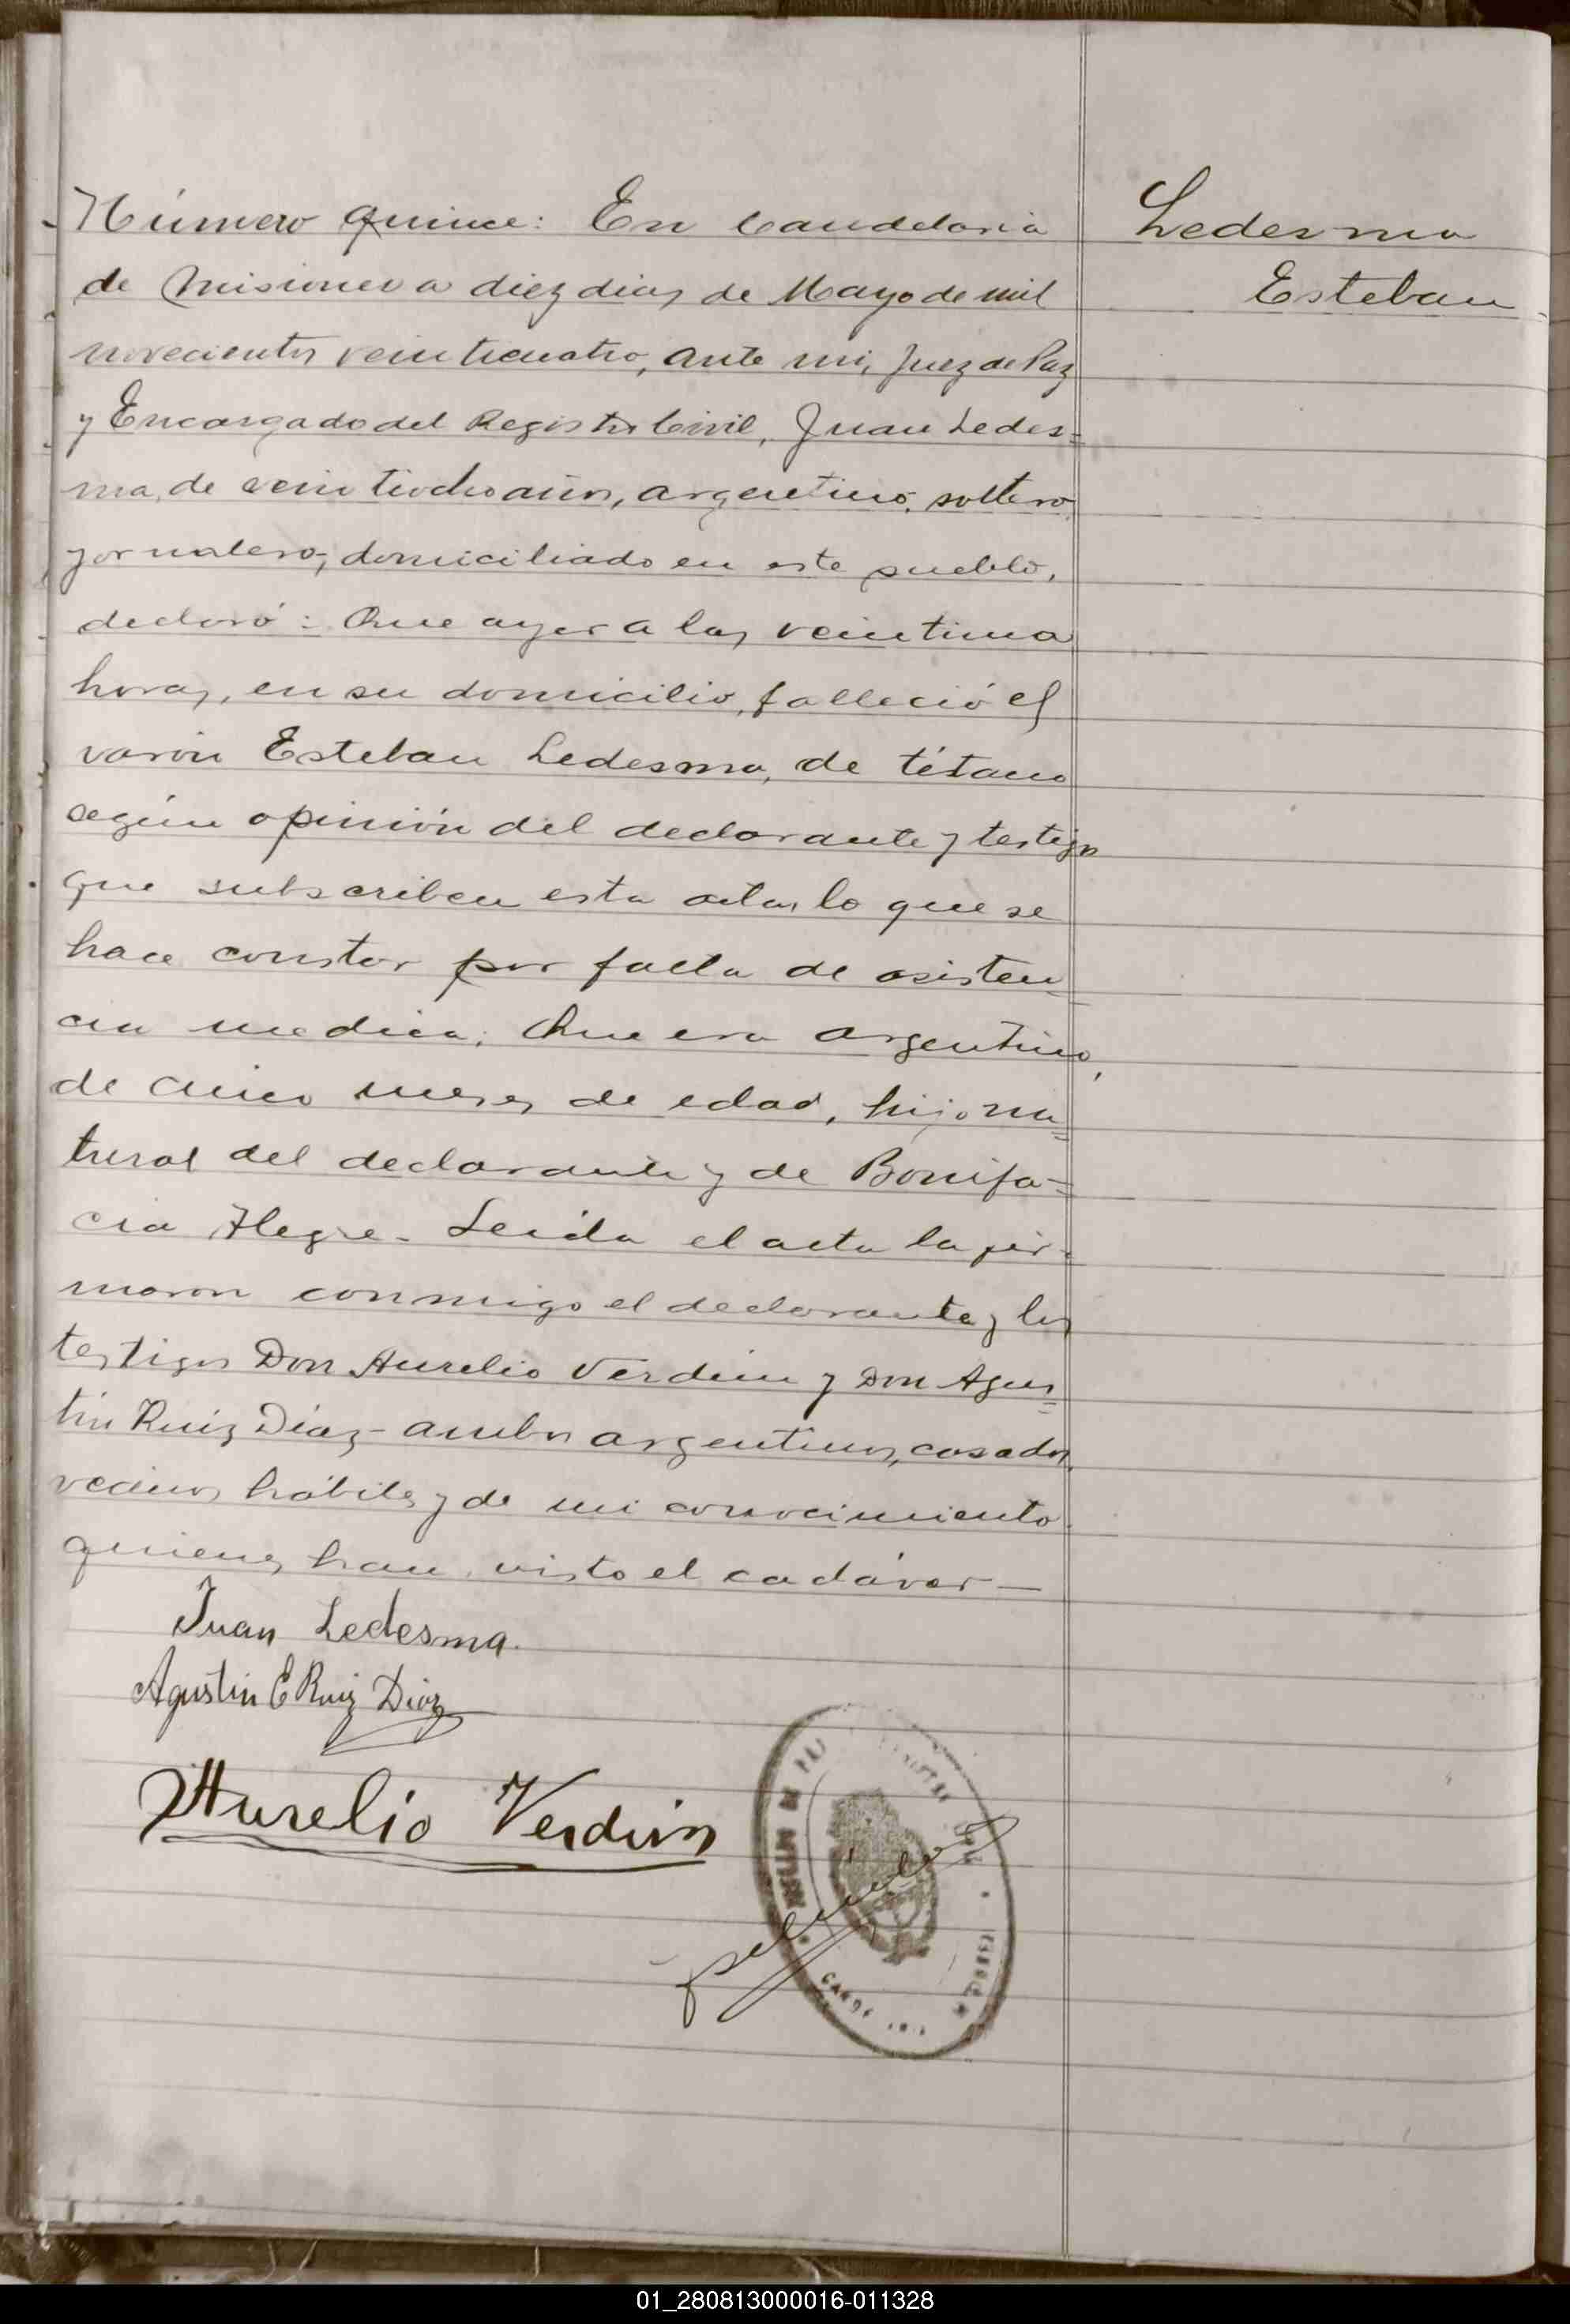 Número quince: En Candelaria
Ledesma
Esteban
de Misiones a diez dias de Mayo de mil
novecientos veinticuatro, ante mi, Juez de Paz
y Encargado del Registro Civil, Juan Ledes=
ma, de veintiocho años, argentino, soltero,
jornalero, domiciliado en este pueblo,
declaró: Que ayer a las veintiuna
horas, en su domicilio, falleció el
varón Esteban Ledesma, de tétano
según opinión del declarante y testigos
que subscriben esta acta, lo que se
hace constar por falta de asisten=
cia medica; Que era argentino,
de cinco meses de edad, hijo na=
tural del declarante y de Bonifa=
cia Alegre. Leida el acta la fir=
maron conmigo el declarante y los
testigos Don Aurelio Verdun y Don Agus=
tin Ruiz Diaz - ambos argentinos, casados,
vecinos hábiles y de mi conocimiento
quienes han visto el cadáver —
Juan Ledesma.
Agustin E Ruiz Diaz
Aurelio Verdún
01_280813000016-011328